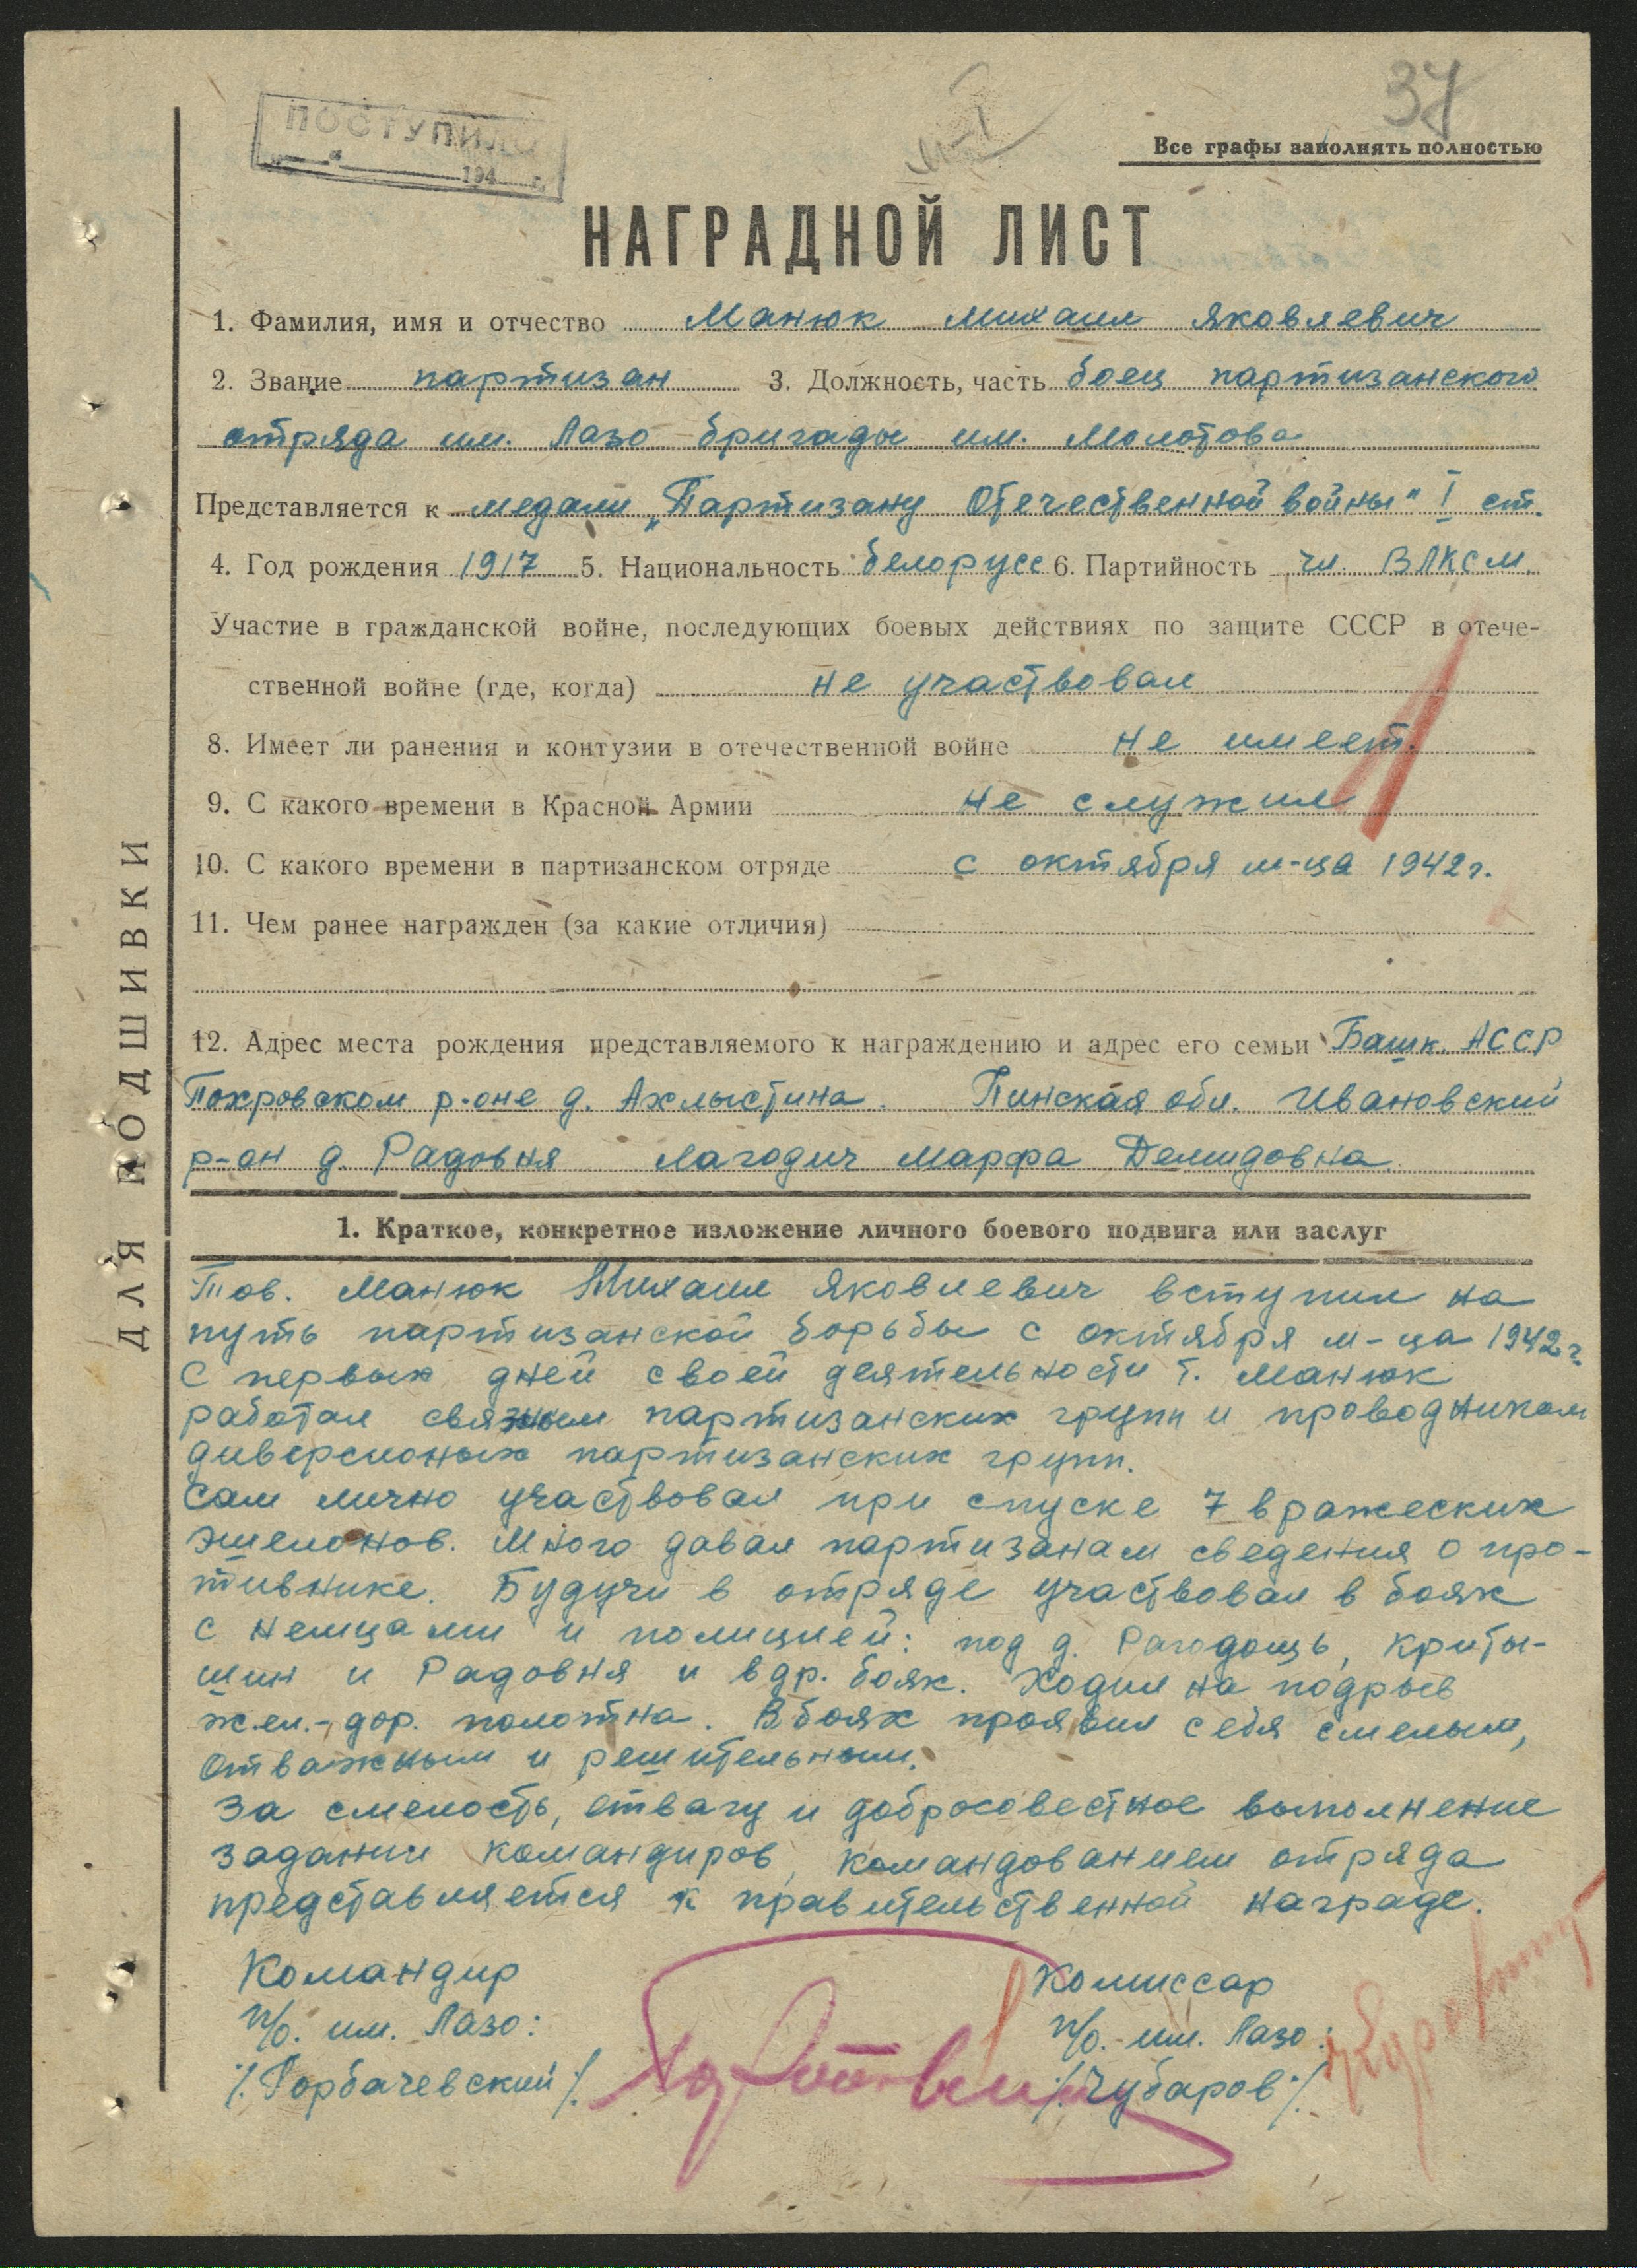 37
м-I
ПОСТУПИЛО
"___"_________194__г.
Все графы заполнять полностью
НАГРАДНОЙ ЛИСТ
1. Фамилия, имя и отчество Манюк Михаил Яковлевич
2. Звание партизан 3. Должность, часть боец партизанского
отряда им. Лазо бригады им. Молотова
Представляется к медали „Партизану Отечественной войны" I ст.
4. Год рождения 1917 5. Национальность белорусс 6. Партийность чл. ВЛКСМ.
Участие в гражданской войне, последующих боевых действиях по защите СССР в отече-
ственной войне (где, когда) не участвовал
8. Имеет ли ранения и контузии в отечественной войне не имеет.
9. С какого времени в Красной Армии не служил
10. С какого времени в партизанском отряде с октября м-ца 1942г.
11. Чем ранее награжден (за какие отличия)
12. Адрес места рождения представляемого к награждению и адрес его семьи Башк. АССР
Похровском р-оне д. Ахлыстина. Пинская обл. Ивановский
р-он д. Радовня Лагодич Марфа Демидовна.
1. Краткое, конкретное изложение личного боевого подвига или заслуг
Тов. Манюк Михаил Яковлевич вступил на
путь партизанской борьбы с октября м-ца 1942г.
С первых дней своей деятельности т. Манюк
работал связным партизанских групп и проводником
диверсионых партизанских групп.
Сам лично участвовал при спуске 7 вражеских
эшелонов. Много давал партизанам сведения о про-
тивнике. Будучи в отряде участвовал в боях
с немцами и полицией: под д. Рагодощь, Криты-
шин и Радовня и в др. боях. Ходил на подрыв
жел.-дор. полотна. В боях проявил себя смелым,
отважным и решительным.
За смелость, отвагу и добросовестное выполнение
задании командиров, командованием отряда
представляется к правительственной награде.
Командир
п/о. им. Лазо:
/Горбачевский/.
Комиссар
п/о. им. Лазо:
/Чубаров/.
ДЛЯ ПОДШИВКИ